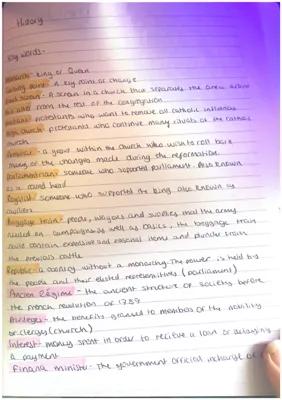 History
key words -
Monarch - king or Queen
Turning point - a key point of change.
Rood screen - A screen in a church that separates the area around
the altar from the rest of the congregation
Puritans - protestants who want to remove all catholic influences
High church - protestants who continue many rituals of the catholic
church
Arminian - a group within the church who wish to roll back
many of the changes made during the reformation.
Parliamentarian - someone who supported parliament. Also known
as a round head
Royalist - someone who supported the king also known as
cavaliers
Baggage train - people, wagons and supplies that the army
relied on campaign as well as basics, the baggage train
could contain expensive and personal items and plunder from
the previous battle
Republic - a country without a monarchy. The power is held by
the people and their elected representatives (parliament)
Ancien Régime - the ancient structure of society before
the french revolution of 1789
Privileges - the benefits granted to members of the nobility
or clergy (church)
Interest - money spent in order to recieve a loan or delaying
a payment
Finance minister - the government official incharge of